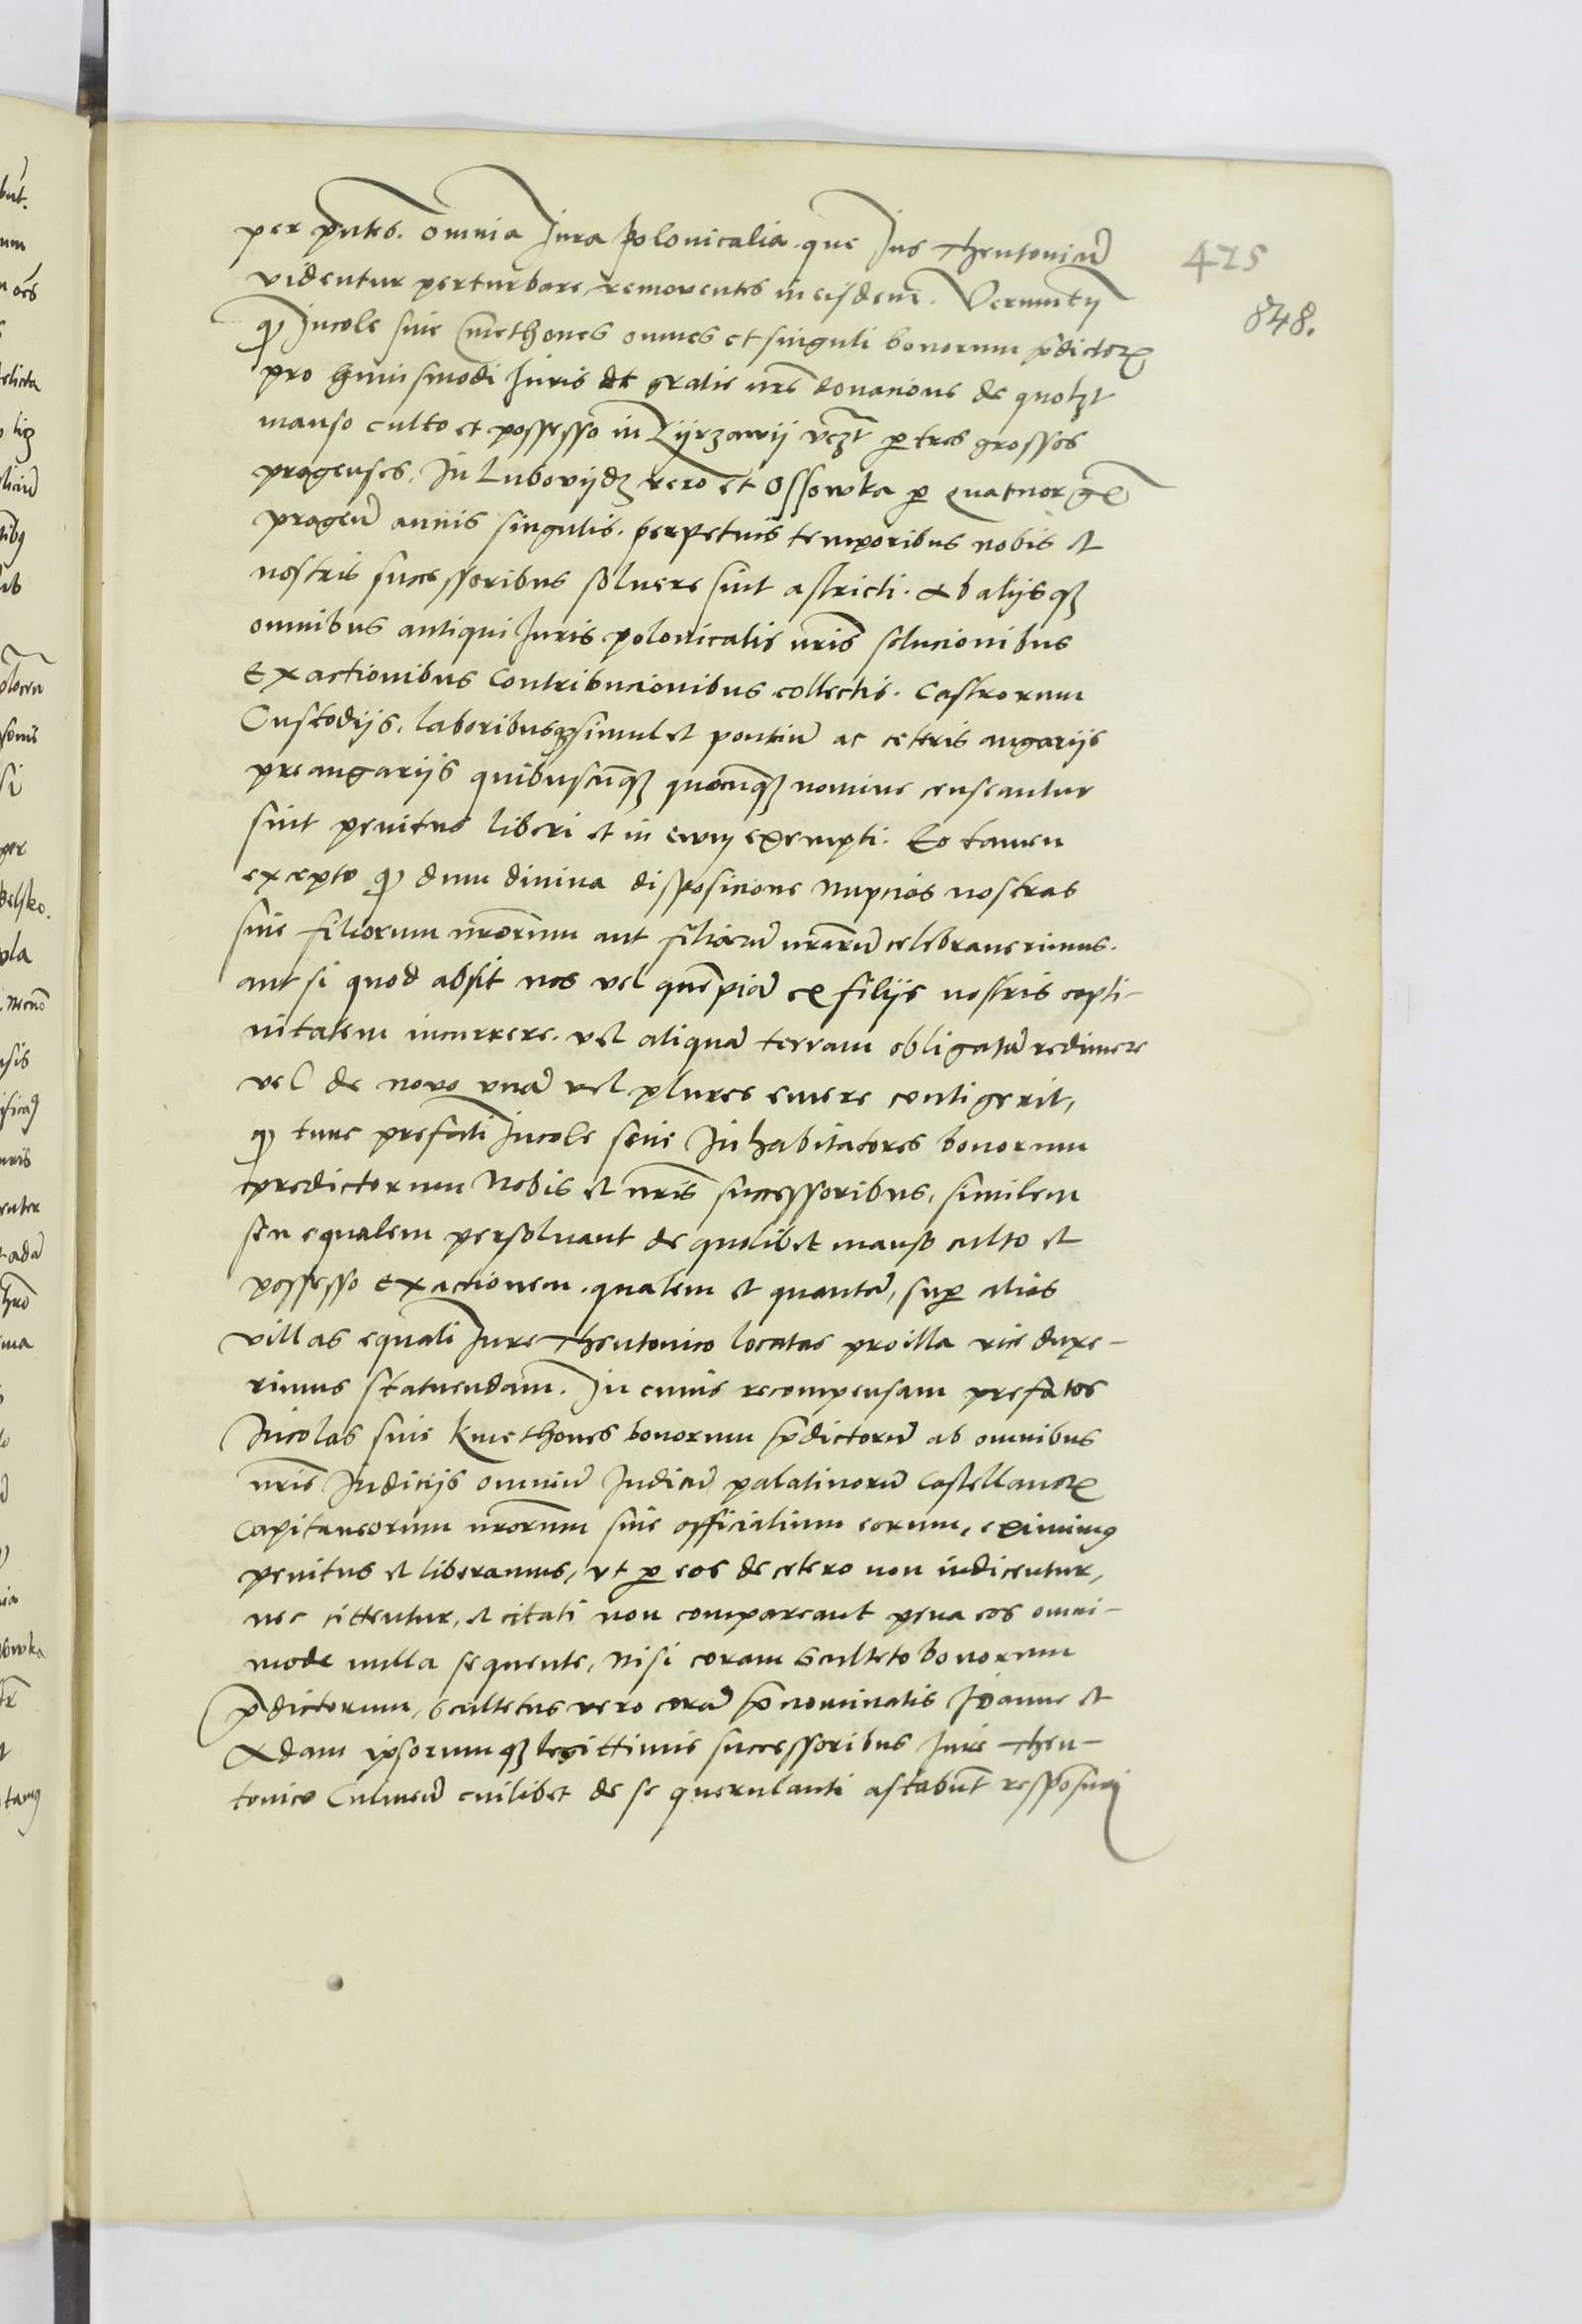 per pntes. omnia Jura polonicalia. que Jus Theutonicũ
videntur perturbare, removentes in eijsdem. Verumtn̄
qp Incole sive Cmethones omnes et singuli bonorum p̄dictoꝝ
pro huiusmodi Juris et gratie nr̄e donacione de quolʒt
manso culto et possesso in Zijrzawij vcʒt p tres grosses
pragenses. In Lubovijdʒ vero et Ossowka p quatuor gr̄
pragen̄ annis singulis. perpetuis temporibus nobis et
nostris successoribus solvere sint astricti. Ab alijsqʒ
omnibus antiqui Juris polonicalis nr̄is solucionibus
Exactionibus Contribucionibus collectis. Castrorum
Custodijs, laboribusqʒ simul et pontiũ ac ceteris angarijs
preangarijs quibuscũqʒ quocũqʒ nomine censeantur
sint penitus liberi et in ewm exempti. Eo tamen
excepto qp dum divina disposicione nupcias nostras
sive filiorum nr̄orum aut filiarũ nr̄arũ celebraverimus.
aut si quod absit nos vel quempiã ex filijs nostris capti-
vitatem incurrere. vel aliquã terram obligatã redimere
vel de novo unã vel plures emere contigerit,
qp tunc prefati Incole seue Inhabitatores bonorum
predictorum Nobis et nr̄is successoribus, similem
seu equalem persolvant de quolibet manso culto et
possesso Exactionem. qualem et quantã, sup alias
villas equali Jure Theutonico locatas pro illa vice duxe-
rimus statuendam. In cuius recompensam prefatos
Incolas sive kmethones bonorum p̄dictorũ ab omnibus
nr̄is Judicijs omniũ Judicũ palatinorũ Castellanoꝝ
Capitaneorum nr̄orum sive officialium eorum, eximimus
penitus et liberamus, ut p eos de cetero non iudicentur,
nec cittentur, et citati non compareant pena eos omni-
mode nulla sequente, nisi coram Sculteto bonorum
p̄dictorum, Scultetus vero corã p̄nominatis Joanne et
Adam ipsorumqʒ legittimis successoribus Jure Theu-
tonico Culmen̄ cuilibet de se querulanti astabunt responsuri
475
848.